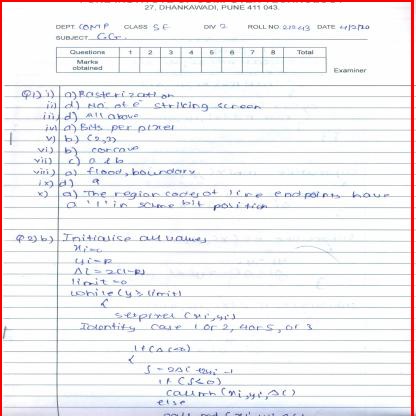 27, DHANKAWADI, PUNE 411 043.
DEPT. COMP CLASS SE DIV 2 ROLL NO. 21243 DATE 4/2/20
SUBJECT CGr.
Questions 1 2 3 4 5 6 7 8 Total
Marks obtained
Examiner
Q1) i) a) Rasterization
ii) d) No of e⁻ striking screen
iii) d) All above
iv) a) Bits per pixel
v) b) (2,3)
vi) b) concave
vii) c) a & b
viii) a) flood, boundary
ix) d) 9
x) a) The region code of line endpoints have
a '1' in same bit position
Q2) b) Initialise all values
xi=0
yi=R
Δi=2(1-R)
limit=0
while(y≥limit)
{
setpixel(xi,yi)
Identity case 1 or 2, 4 or 5, or 3
if(Δi<0)
{
if(δ≤0)
else